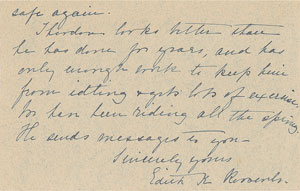 safe again.
Theodore looks better than
he has done for years, and has
only enough work to keep him
from idling & gets lots of exercise,
for has been riding all the spring
He sends messages to you
Sincerely yours
Edith K. Roosevelt